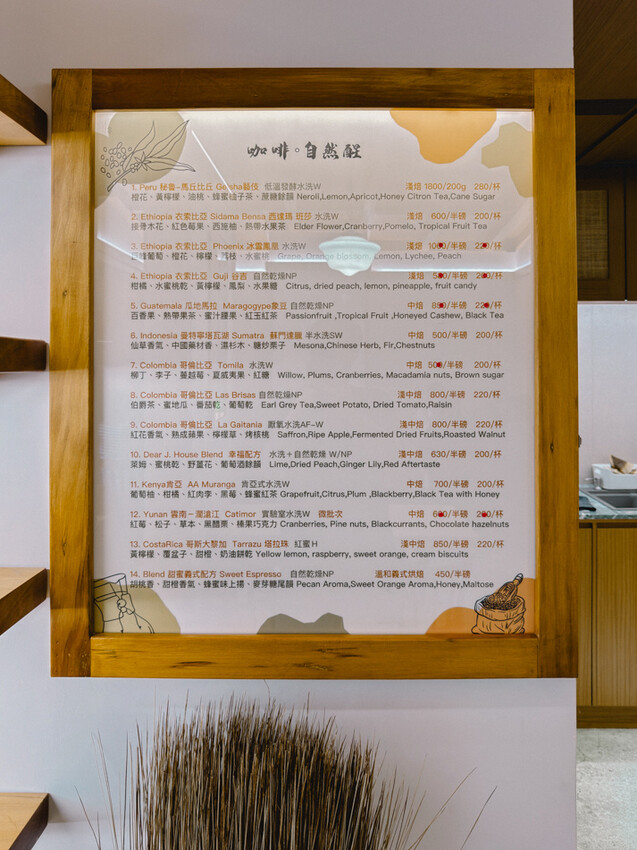 咖啡。自然醒
1. Peru 秘魯–馬丘比丘 Geisha藝伎 低溫發酵水洗W 淺焙 1800/200g 280/杯
橙花、黃檸檬、油桃、蜂蜜柚子茶、蔗糖餘韻 Neroli,Lemon,Apricot,Honey Citron Tea,Cane Sugar
2. Ethiopia 衣索比亞 Sidama Bensa 西達瑪 班莎 水洗W 淺焙 600/半磅 200/杯
接骨木花、紅色莓果、西施柚、熱帶水果茶 Elder Flower,Cranberry,Pomelo, Tropical Fruit Tea
3. Ethiopia 衣索比亞 Phoenix 冰雪鳳凰 水洗W 淺焙
葡萄、橙花、檸檬、荔枝、水蜜桃 Grape, Orange blossom, Lemon, Lychee, Peach
4. Ethiopia 衣索比亞 Guji 谷吉 自然乾燥NP 淺焙
柑橘、水蜜桃乾、黃檸檬、鳳梨、水果糖 Citrus, dried peach, lemon, pineapple, fruit candy
5. Guatemala 瓜地馬拉 Maragogype象豆 自然乾燥NP 中焙
百香果、熱帶果茶、蜜汁腰果、紅玉紅茶 Passionfruit ,Tropical Fruit ,Honeyed Cashew, Black Tea
6. Indonesia 曼特寧塔瓦湖 Sumatra 蘇門達臘 半水洗SW 中焙 500/半磅 200/杯
仙草香氣、中國藥材香、湯杉木、糖炒栗子 Mesona,Chinese Herb, Fir,Chestnuts
7. Colombia 哥倫比亞 Tomila 水洗W 中焙 500/半磅 200/杯
柳丁、李子、蔓越莓、夏威夷果、紅糖 Willow, Plums, Cranberries, Macadamia nuts, Brown sugar
8. Colombia 哥倫比亞 Las Brisas 自然乾燥NP 淺中焙 800/半磅 220/杯
伯爵茶、蜜地瓜、番茄乾、葡萄乾 Earl Grey Tea,Sweet Potato, Dried Tomato,Raisin
9. Colombia 哥倫比亞 La Gaitania 厭氧水洗AF-W 淺中焙 800/半磅 220/杯
紅花香氣、熟成蘋果、檸檬草、烤核桃 Saffron,Ripe Apple,Fermented Dried Fruits,Roasted Walnut
10. Dear J. House Blend 幸福配方 水洗＋自然乾燥 W/NP 淺中焙 630/半磅 200/杯
萊姆、蜜桃乾、野薑花、葡萄酒餘韻 Lime,Dried Peach,Ginger Lily,Red Aftertaste
11. Kenya肯亞 AA Muranga 肯亞式水洗W 中焙 700/半磅 200/杯
葡萄柚、柑橘、紅肉李、黑莓、蜂蜜紅茶 Grapefruit,Citrus,Plum ,Blackberry,Black Tea with Honey
12. Yunan 雲南–瀾滄江 Catimor 實驗室水洗W 微批次 中焙
紅莓、松子、草本、黑醋栗、榛果巧克力 Cranberries, Pine nuts, Blackcurrants, Chocolate hazelnuts
13. CostaRica 哥斯大黎加 Tarrazu 塔拉珠 紅蜜H 淺中焙 850/半磅 220/杯
黃檸檬、覆盆子、甜橙、奶油餅乾 Yellow lemon, raspberry, sweet orange, cream biscuits
14. Blend 甜蜜義式配方 Sweet Espresso 自然乾燥NP 溫和義式烘焙 450/半磅
胡桃香、甜橙香氣、蜂蜜味上揚、麥芽糖尾韻 Pecan Aroma,Sweet Orange Aroma,Honey,Maltose